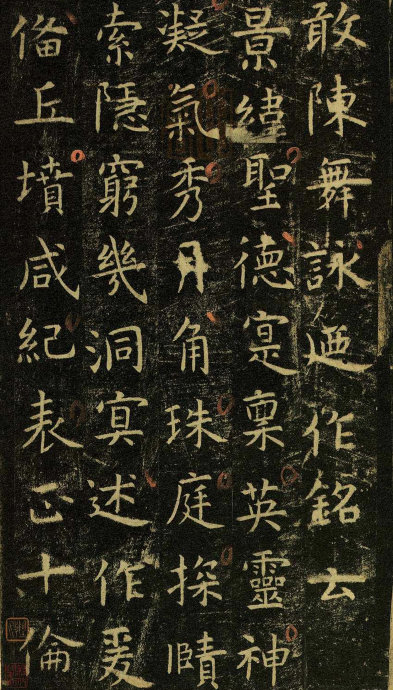 敢陳舞詠迺作銘云
景緯聖德寔稟英靈神
凝氣秀月角珠庭探賾
索隱窮幾洞冥述作爰
俻丘墳咸紀表正十倫